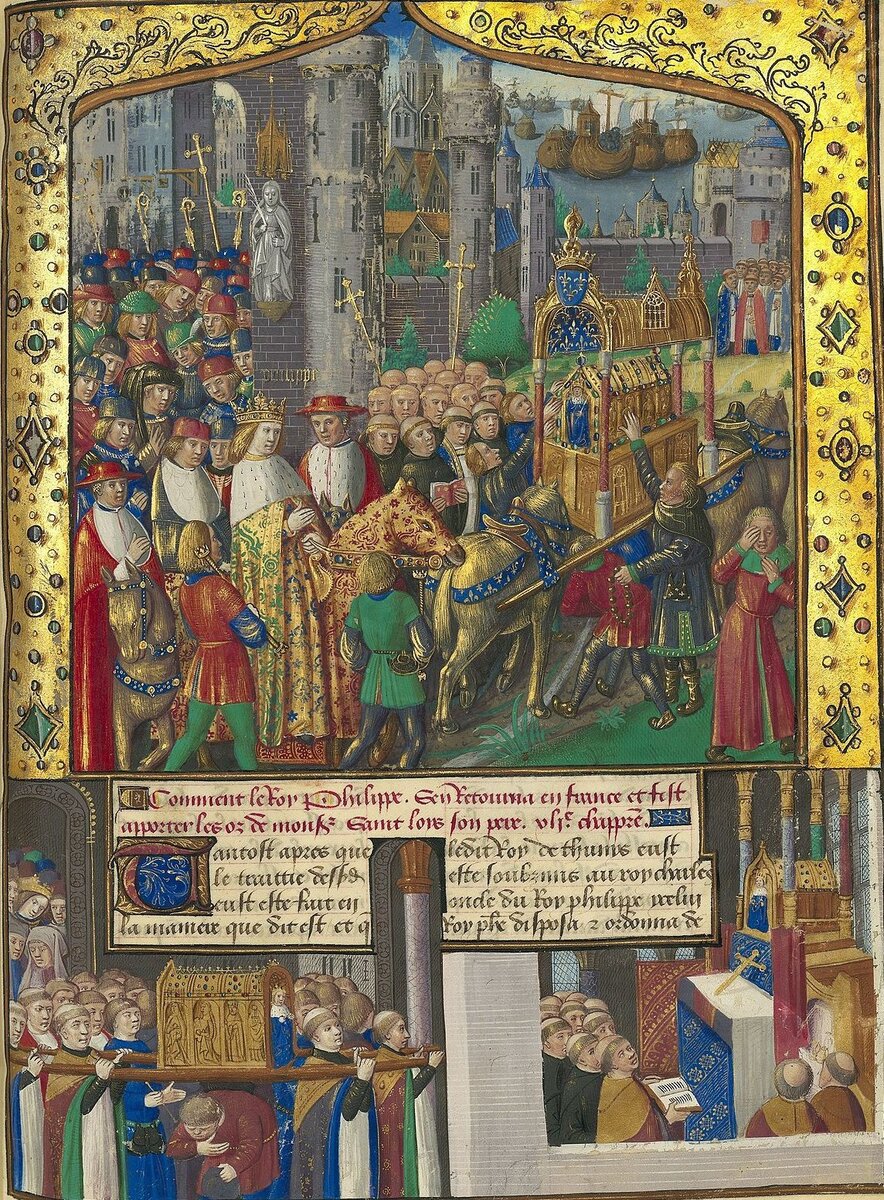 Comment le Roy Philippe. Sen Retourna en france et fist
apporter les oz de monsr. Saint loys son pere. vlie. chappre.
Tantost apres que
le traittie dessd
eust este fait en
la maniere que dit est et q
ledit Roy de thunis eust
este soubzmis au roy charles
oncle du Roy philippe icellui
Roy phe disposa & ordonna de